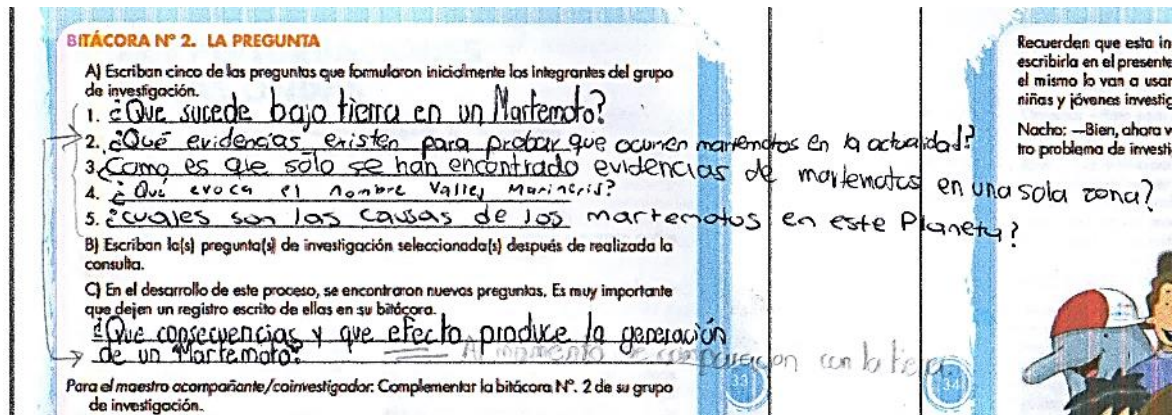 BITÁCORA Nº 2. LA PREGUNTA
A) Escriban cinco de las preguntas que formularon inicialmente los integrantes del grupo
de investigación.
1. ¿Que sucede bajo tierra en un Martemoto?
2. ¿Qué evidencias existen para probar que ocurren martemotos en la actualidad?
3. ¿Como es que sólo se han encontrado evidencias de martemotos en una sola zona?
4. ¿Qué evoca el nombre Valley Marineris?
5. ¿cuales son las causas de los martemotos en este Planeta?
B) Escriban la(s) pregunta(s) de investigación seleccionada(s) después de realizada la
consulta.
C) En el desarrollo de este proceso, se encontraron nuevas preguntas. Es muy importante
que dejen un registro escrito de ellas en su bitácora.
¿Que consecuencias y que efecto produce la generación
de un Martemoto?
Al momento de comparacion con la tierra.
Para el maestro acompañante/coinvestigador: Complementar la bitácora Nº. 2 de su grupo
de investigación.
33
Recuerden que esta in
escribirla en el presente
el mismo lo van a usar
niñas y jóvenes investig
Nacho: —Bien, ahora v
tro problema de investi
34